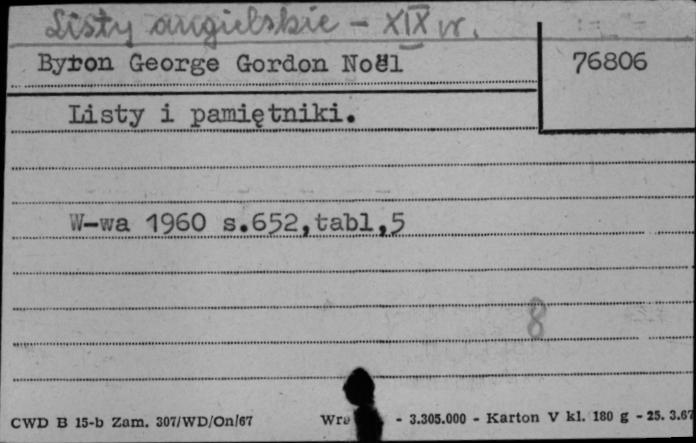 Listy angielskie - XIX w.
Byron George Gordon Noël 76806
Listy i pamiętniki.
W-wa 1960 s.652,tabl,5
8
CWD B 15-b Zam. 307/WD/On/67 - 3.305.000 - Karton V kl. 180 g - 25. 3.67